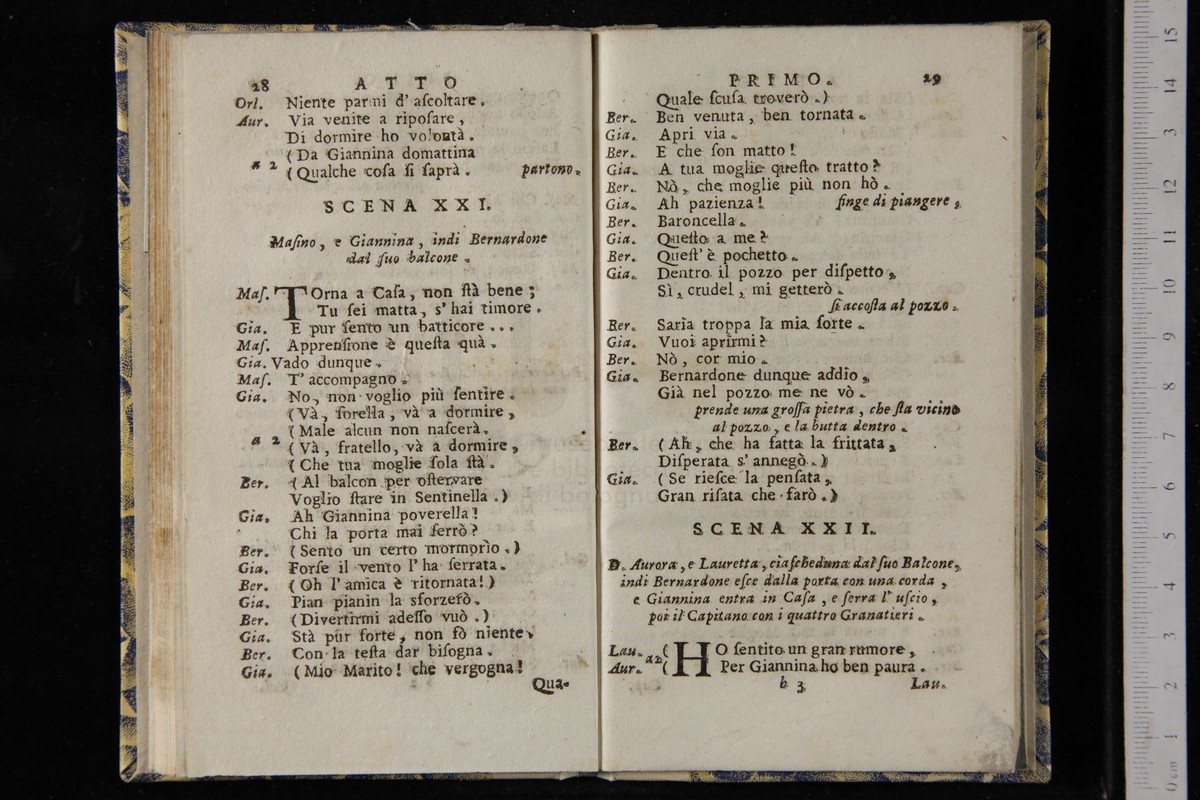 28 ATTO
Orl. Niente parmi d' aſcoltare.
Aur. Via venite a ripoſare,
Di dormire ho volontà.
(Da Giannina domattina
a 2 (Qualche coſa ſi ſaprà. partono.
SCENA XXI.
Maſino, e Giannina, indi Bernardone
dal ſuo balcone.
Maſ. TOrna a Caſa, non ſtà bene;
Tu ſei matta, s' hai timore.
Gia. E pur ſento un batticore...
Maſ. Apprenſione è queſta quà.
Gia. Vado dunque.
Maſ. T' accompagno.
Gia. No, non voglio più ſentire.
(Và, ſorella, và a dormire,
(Male alcun non naſcerà.
a 2 (Và, fratello, và a dormire,
(Che tua moglie ſola ſtà.
Ber. (Al balcon per oſſervare
Voglio ſtare in Sentinella.)
Gia. Ah Giannina poverella!
Chi la porta mai ſerrò?
Ber. (Sento un certo mormorìo.)
Gia. Forſe il vento l' ha ſerrata.
Ber. (Oh l' amica è ritornata!)
Gia. Pian pianin la sforzerò.
Ber. (Divertirmi adeſſo vuò.)
Gia. Stà pur forte, non fò niente.
Ber. Con la teſta dar biſogna.
Gia. (Mio Marito! che vergogna!
Qua-
PRIMO. 29
Quale ſcuſa troverò.)
Ber. Ben venuta, ben tornata.
Gia. Apri via.
Ber. E che ſon matto!
Gia. A tua moglie queſto tratto?
Ber. Nò, che moglie più non hò.
Gia. Ah pazienza! finge di piangere.
Ber. Baroncella.
Gia. Queſto a me?
Ber. Queſt' è pochetto.
Gia. Dentro il pozzo per diſpetto,
Sì, crudel, mi getterò.
ſi accoſta al pozzo.
Ber. Sarìa troppa la mia ſorte.
Gia. Vuoi aprirmi?
Ber. Nò, cor mio.
Gia. Bernardone dunque addio,
Già nel pozzo me ne vò.
prende una groſſa pietra, che ſta vicino
al pozzo, e la butta dentro.
Ber. (Ah, che ha fatta la frittata,
Diſperata s' annegò.)
Gia. (Se rieſce la penſata,
Gran riſata che farò.)
SCENA XXII.
D. Aurora, e Lauretta, ciaſcheduna dal ſuo Balcone,
indi Bernardone eſce dalla porta con una corda,
e Giannina entra in Caſa, e ſerra l' uſcio,
poi il Capitano con i quattro Granatieri.
Lau. a 2 ( HO ſentito un gran rumore,
Aur. ( Per Giannina ho ben paura.
b 3 Lau.